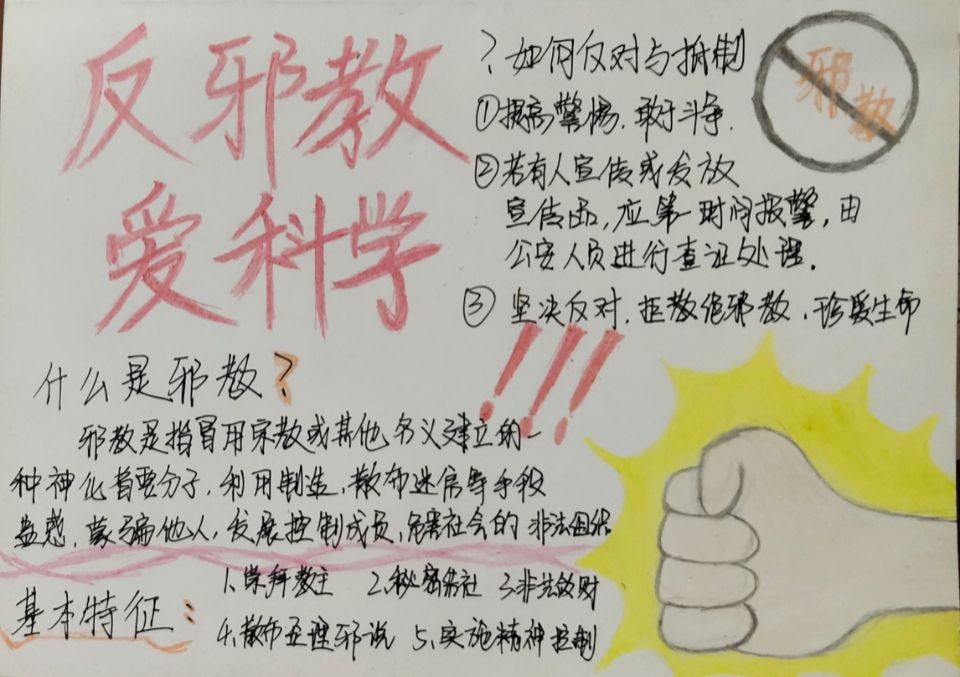 反邪教
爱科学
?如何反对与抵制
邪教
①提高警惕.敢于斗争.
②若有人宣传或发放
宣传品,应第一时间报警,由
公安人员进行查证与处理.
③ 坚决反对.拒教绝邪教.珍爱生命
!!!
什么是邪教?
邪教是指冒用宗教或其他名义建立的一
种神化首要分子.利用制造.散布迷信等手段
蛊惑.蒙骗他人,发展控制成员,危害社会的非法组织
基本特征:
1.崇拜教主 2.秘密结社 3.非法敛财
4.散布歪理邪说 5.实施精神控制